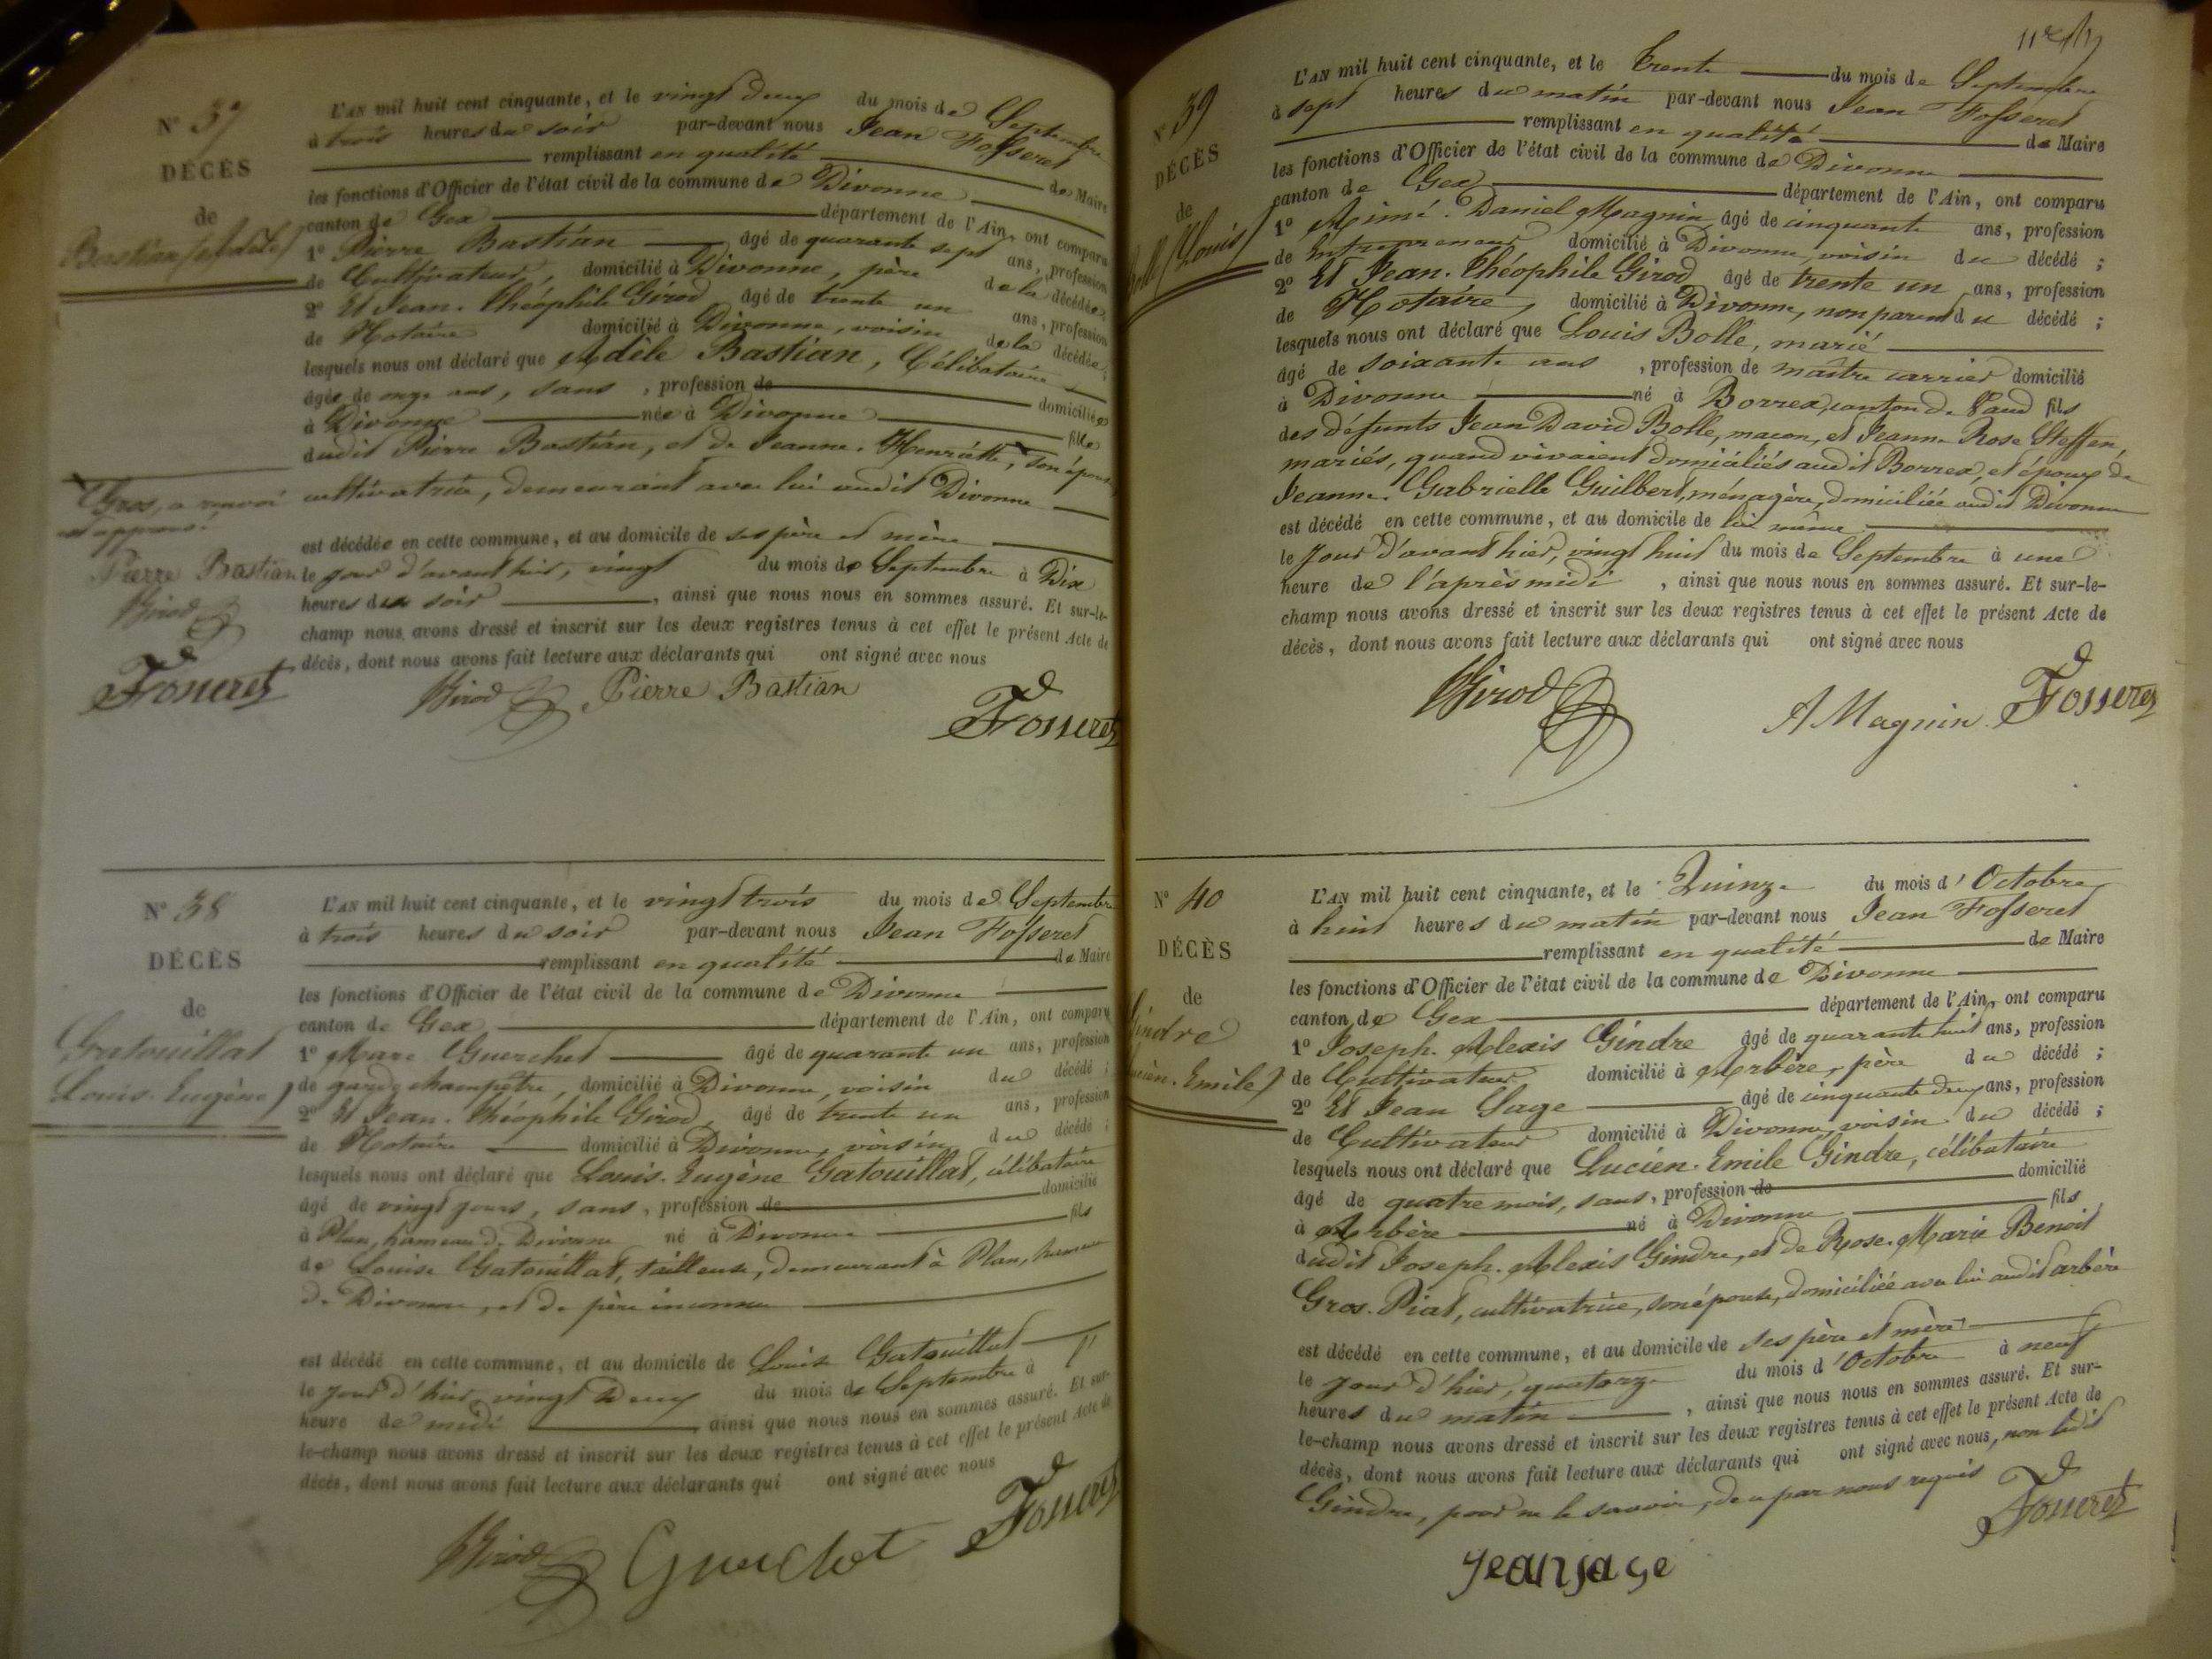 N° 37
DÉCÈS
de
Bastian (Adèle)
L'AN mil huit cent cinquante, et le vingt deux du mois de Septembre
à trois heures du soir par-devant nous Jean Fosseret
remplissant en qualité de Maire
les fonctions d'Officier de l'état civil de la commune de Divonne
canton de Gex département de l'Ain, ont comparu
1° Pierre Bastian âgé de quarante sept ans, profession
de Cultivateur, domicilié à Divonne, père de la décédée;
2° Et Jean-Théophile Girod âgé de trente un ans, profession
de Notaire domicilié à Divonne, voisin de la décédée;
lesquels nous ont déclaré que Adèle Bastian, Célibataire
âgée de onze ans, sans, profession de domiciliée
à Divonne née à Divonne fille
dudit Pierre Bastian, et de Jeanne-Henriette, son épouse
cultivatrice, demeurant avec lui audit Divonne
Gros, a renvoi
est approuvé
Pierre Bastian
Girod
Fosseret
est décédée en cette commune, et au domicile de ses père et mère
le jour d'avant hier, vingt du mois de Septembre à Dix
heures du soir, ainsi que nous nous en sommes assuré. Et sur-le-
champ nous avons dressé et inscrit sur les deux registres tenus à cet effet le présent Acte de
décès, dont nous avons fait lecture aux déclarants qui ont signé avec nous
Girod Pierre Bastian Fosseret
N° 38
DÉCÈS
de
Gatouillat
Louis-Eugène)
L'AN mil huit cent cinquante, et le vingt trois du mois de Septembre
à trois heures du soir par-devant nous Jean Fosseret
remplissant en qualité de Maire
les fonctions d'Officier de l'état civil de la commune de Divonne
canton de Gex département de l'Ain, ont comparu
1° Marc Guerchet âgé de quarante un ans, profession
de garde champêtre, domicilié à Divonne, voisin du décédé;
2° Et Jean-Théophile Girod, âgé de trente un ans, profession
de Notaire domicilié à Divonne, voisin du décédé;
lesquels nous ont déclaré que Louis-Eugène Gatouillat, célibataire
âgé de vingt jours, sans, profession de domicilié
à Plan, hameau de Divonne né à Divonne fils
de Louise Gatouillat, tailleuse, demeurant à Plan, hameau
de Divonne, et de père inconnu
est décédé en cette commune, et au domicile de Louise Gatouillat
le jour d'hier vingt deux du mois de Septembre à l'
heure de midi, ainsi que nous nous en sommes assuré. Et sur-
le-champ nous avons dressé et inscrit sur les deux registres tenus à cet effet le présent Acte de
décès, dont nous avons fait lecture aux déclarants qui ont signé avec nous
Girod Guerchet Fosseret
N° 39
DÉCÈS
de
Bolle (Louis)
L'AN mil huit cent cinquante, et le trente du mois de Septembre
à sept heures du matin par-devant nous Jean Fosseret
remplissant en qualité de Maire
les fonctions d'Officier de l'état civil de la commune de Divonne
canton de Gex département de l'Ain, ont comparu
1° Aimé-Daniel Magnin âgé de cinquante ans, profession
de Entrepreneur domicilié à Divonne, voisin du décédé;
2° Et Jean-Théophile Girod âgé de trente un ans, profession
de Notaire, domicilié à Divonne, non parent du décédé;
lesquels nous ont déclaré que Louis Bolle, marié
âgé de soixante ans, profession de maître carrier domicilié
à Divonne né à Borrex, canton de Vaud fils
des défunts Jean David Bolle, maçon, et Jeanne Rose Steffen,
mariés, quand vivaient domiciliés audit Borrex, et époux de
Jeanne-Gabrielle Guilbert, ménagère, domiciliée audit Divonne
est décédé en cette commune, et au domicile de lui même
le jour d'avant hier, vingt huit du mois de Septembre à une
heure de l'après midi, ainsi que nous nous en sommes assuré. Et sur-le-
champ nous avons dressé et inscrit sur les deux registres tenus à cet effet le présent Acte de
décès, dont nous avons fait lecture aux déclarants qui ont signé avec nous
Girod A Magnin Fosseret
N° 40
DÉCÈS
de
Gindre
Lucien-Emile)
L'AN mil huit cent cinquante, et le Quinze du mois d'Octobre
à huit heures du matin par-devant nous Jean Fosseret
remplissant en qualité de Maire
les fonctions d'Officier de l'état civil de la commune de Divonne
canton de Gex département de l'Ain, ont comparu
1° Joseph-Alexis Gindre âgé de quarante huit ans, profession
de Cultivateur domicilié à Arbère, père du décédé;
2° Et Jean Sage âgé de cinquante deux ans, profession
de Cultivateur domicilié à Divonne, voisin du décédé;
lesquels nous ont déclaré que Lucien-Emile Gindre, célibataire
âgé de quatre mois, sans, profession de domicilié
à Arbère né à Divonne fils
dudit Joseph-Alexis Gindre, et de Rose-Marie Benoit
Gros-Piat, cultivatrice, son épouse, domiciliée avec lui audit arbère
est décédé en cette commune, et au domicile de ses père et mère
le jour d'hier, quatorze du mois d'Octobre à neuf
heures du matin, ainsi que nous nous en sommes assuré. Et sur-
le-champ nous avons dressé et inscrit sur les deux registres tenus à cet effet le présent Acte de
décès, dont nous avons fait lecture aux déclarants qui ont signé avec nous, non ledit
Gindre, pour ne le savoir, de ce par nous requis
Fosseret
jean sage